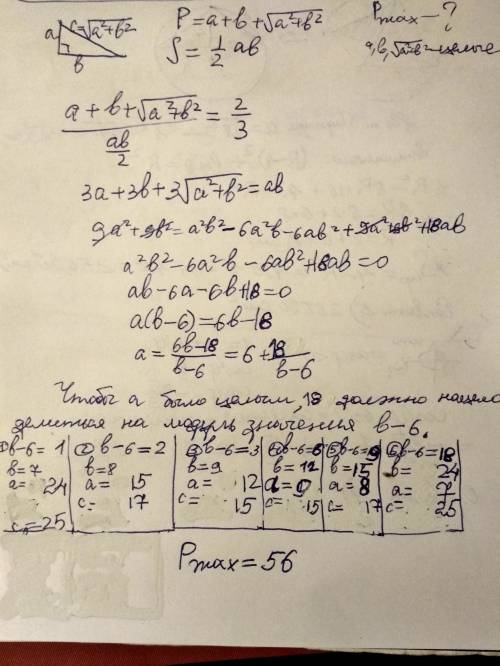 a c=√a²+b² P=a+b+√a²+b² Pmax - ?
b S=½ab a,b,√a²+b² - целые
(a+b+√a²+b²)/(ab/2) = 2/3
3a+3b+3√a²+b²=ab
9a²+9b²=a²b²-6a²b-6ab²+9a²+9b²+18ab
a²b²-6a²b-6ab²+18ab=0
ab-6a-6b+18=0
a(b-6)=6b-18
a=(6b-18)/(b-6)=6+18/(b-6)
Чтобы a было целым, 18 должно нацело
делиться на модуль значения b-6.
①b-6=1 ②b-6=2 ③b-6=3 ④b-6=6 ⑤b-6=9 ⑥b-6=18
b=7 b=8 b=9 b=12 b=15 b=24
a=24 a=15 a=12 a=9 a=8 a=7
c=25 c=17 c=15 c=15 c=17 c=25
Pmax=56